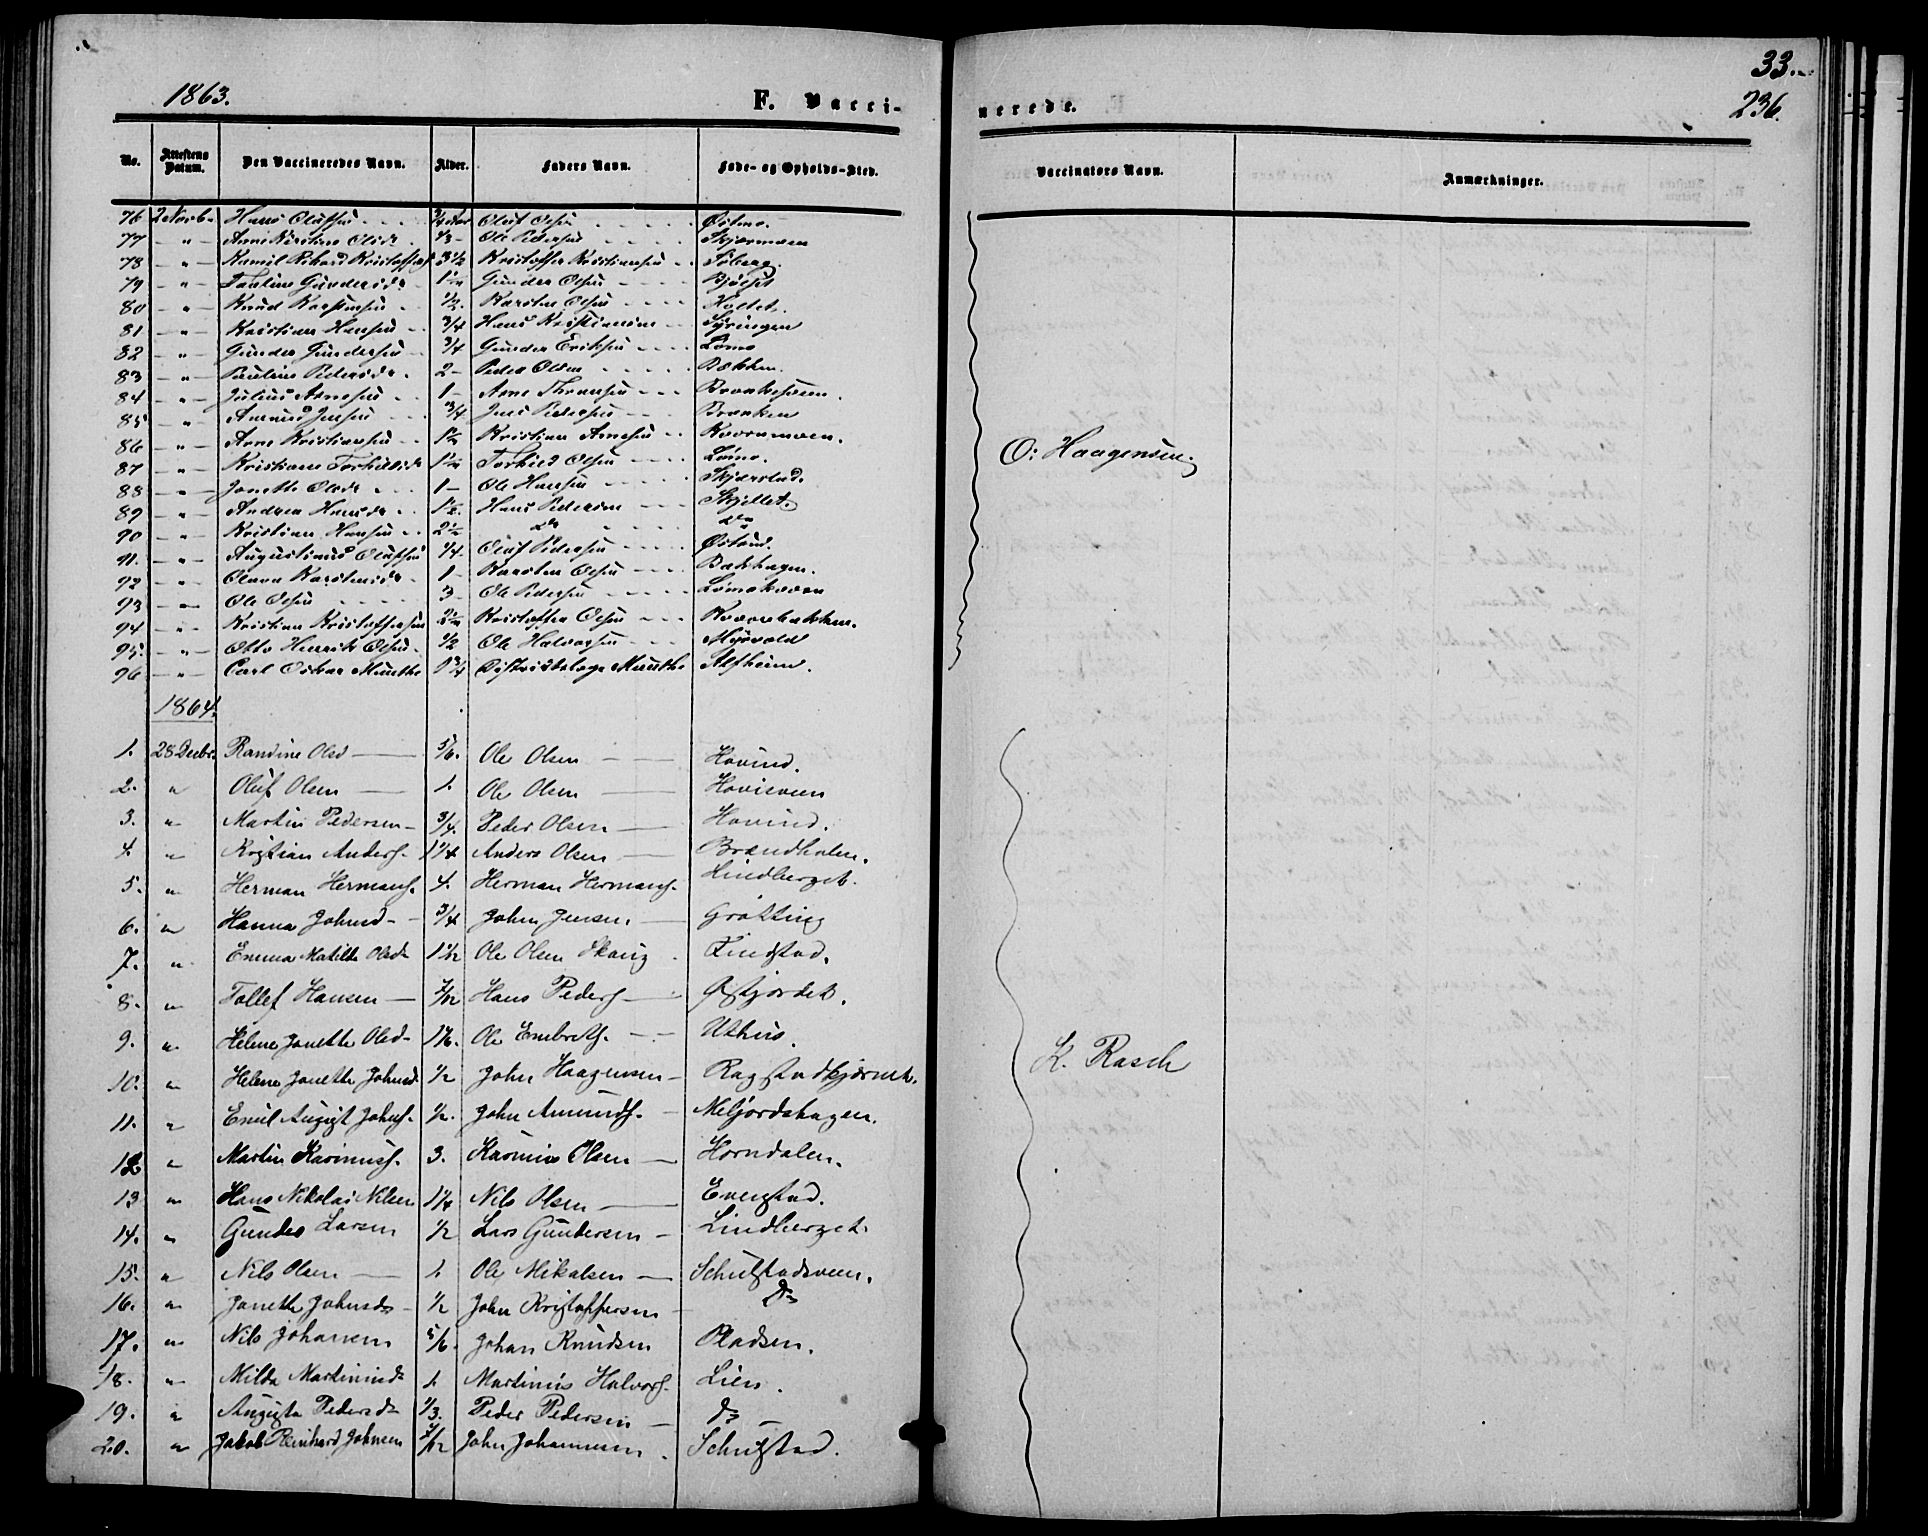 33.
1863. F. Vacci- nerede. 236.
No. Attestens Datum. Den Vaccineredes Navn. Alder. Faders Navn. Føde- og Opholds-Sted. Vaccinators Navn. Anmærkninger.
76 2 Novb. Hans Olufsen Oluf Olsen
77 " Ole Pedersen Skjærmoen
78 " Kristoffer Kristiansen Søberg.
79 " Gundersdr. 1½ Gunder Olsen
80 " Knud Karstensen ½. Karsten Olsen Holtet.
81 " Kristian Hansen 3/4 Hans Kristiansen
82 " Gunder Gundersen 3/4 Gunder Eriksen Lømo
83 " Pauline Pedersdr. 2 Peder Olsen Bakken.
84 " Julius Arnesen 1 Arne Braatesveen.
85 " Jensen 3/4 Jens Pedersen Braaten
86 " Arne Kristiansen 1½ Kristian Arnesen Kværnmoen.
87 " Kristiane Torkildsdr 1½ Torkild Olsen Lømo.
88 " Janette Olsdr. 1 Ole Hansen Skjærstad.
89 " Andrea Hansdr. 1½. Hans Pedersen Skjellet. O: Haagensen.
90 " Kristian Hansen 2½ do do
91. " Augustinus Olufsen 1/4 Oluf Pedersen
92 " Olava Karstensdr. 1 Karsten Olsen Bakhagen.
93 " Ole Olsen 3 Ole Pedersen Lømokværn
94 " Kristian Kristoffersen 2½ Kristoffer Olsen Kværnbakken.
95. " Otto Henrik Olsen. ½ Ole Halvorsen Myrvold
96 " Carl Oskar Munthe 1 3/4 Distriktslæge Munthe Alfheim.
1864.
1. 28 Decbr. Randine Olsd 5/6. Ole Olsen Hovind.
2. " Oluf Olsen 1. Ole Olsen
3. " Martin Pedersen 3/4. Peder Olsen Hovind.
4. " Kristian Anders. 1 1/4 Anders Olsen Brændholen.
5. " Herman Hermans. 4. Herman Hermans. Lindberget.
6. " Hanna Johnsd 3/4 John Jensen Grøtting
7. " Emma Matilde Olsdr 1½ Ole Olsen Skaug Findstad.
8. " Tollef Hansen Hans Peders. Østjordet.
9. " Helene Janette Olsd 1 1/6. Ole Embrets. Uthus.
10. " Helene Janette Johnsd. ½ John Haagensen Ragstadkjernet. K. Rasch
11. " Emil August Johns. ½. John Amunds. Meljordshagen.
12 " Martin Karinius. 3. Karinius Olsen Horndalen.
13 " Hans Nikolai Nilsen 1 1/4 Nils Olsen Evenstad.
14. " Gunder Larsen ½ Lars Gundersen Lindberget.
15. " Nils Olsen 1. Ole Mikalsen Schulstadsveen.
16. " Janette Johnsdr ½ John Kristoffersen Do
17. " Nils Johansen 5/6. Johan Knudsen Pladsen.
18. " Milda Martinusdr 1. Martinus Halvors. Lien.
19. " Augusta Pedersdr 1/3. Peder Pedersen do
20. " Jakob Reinhard Johnsen John Johannesen Schulstad.